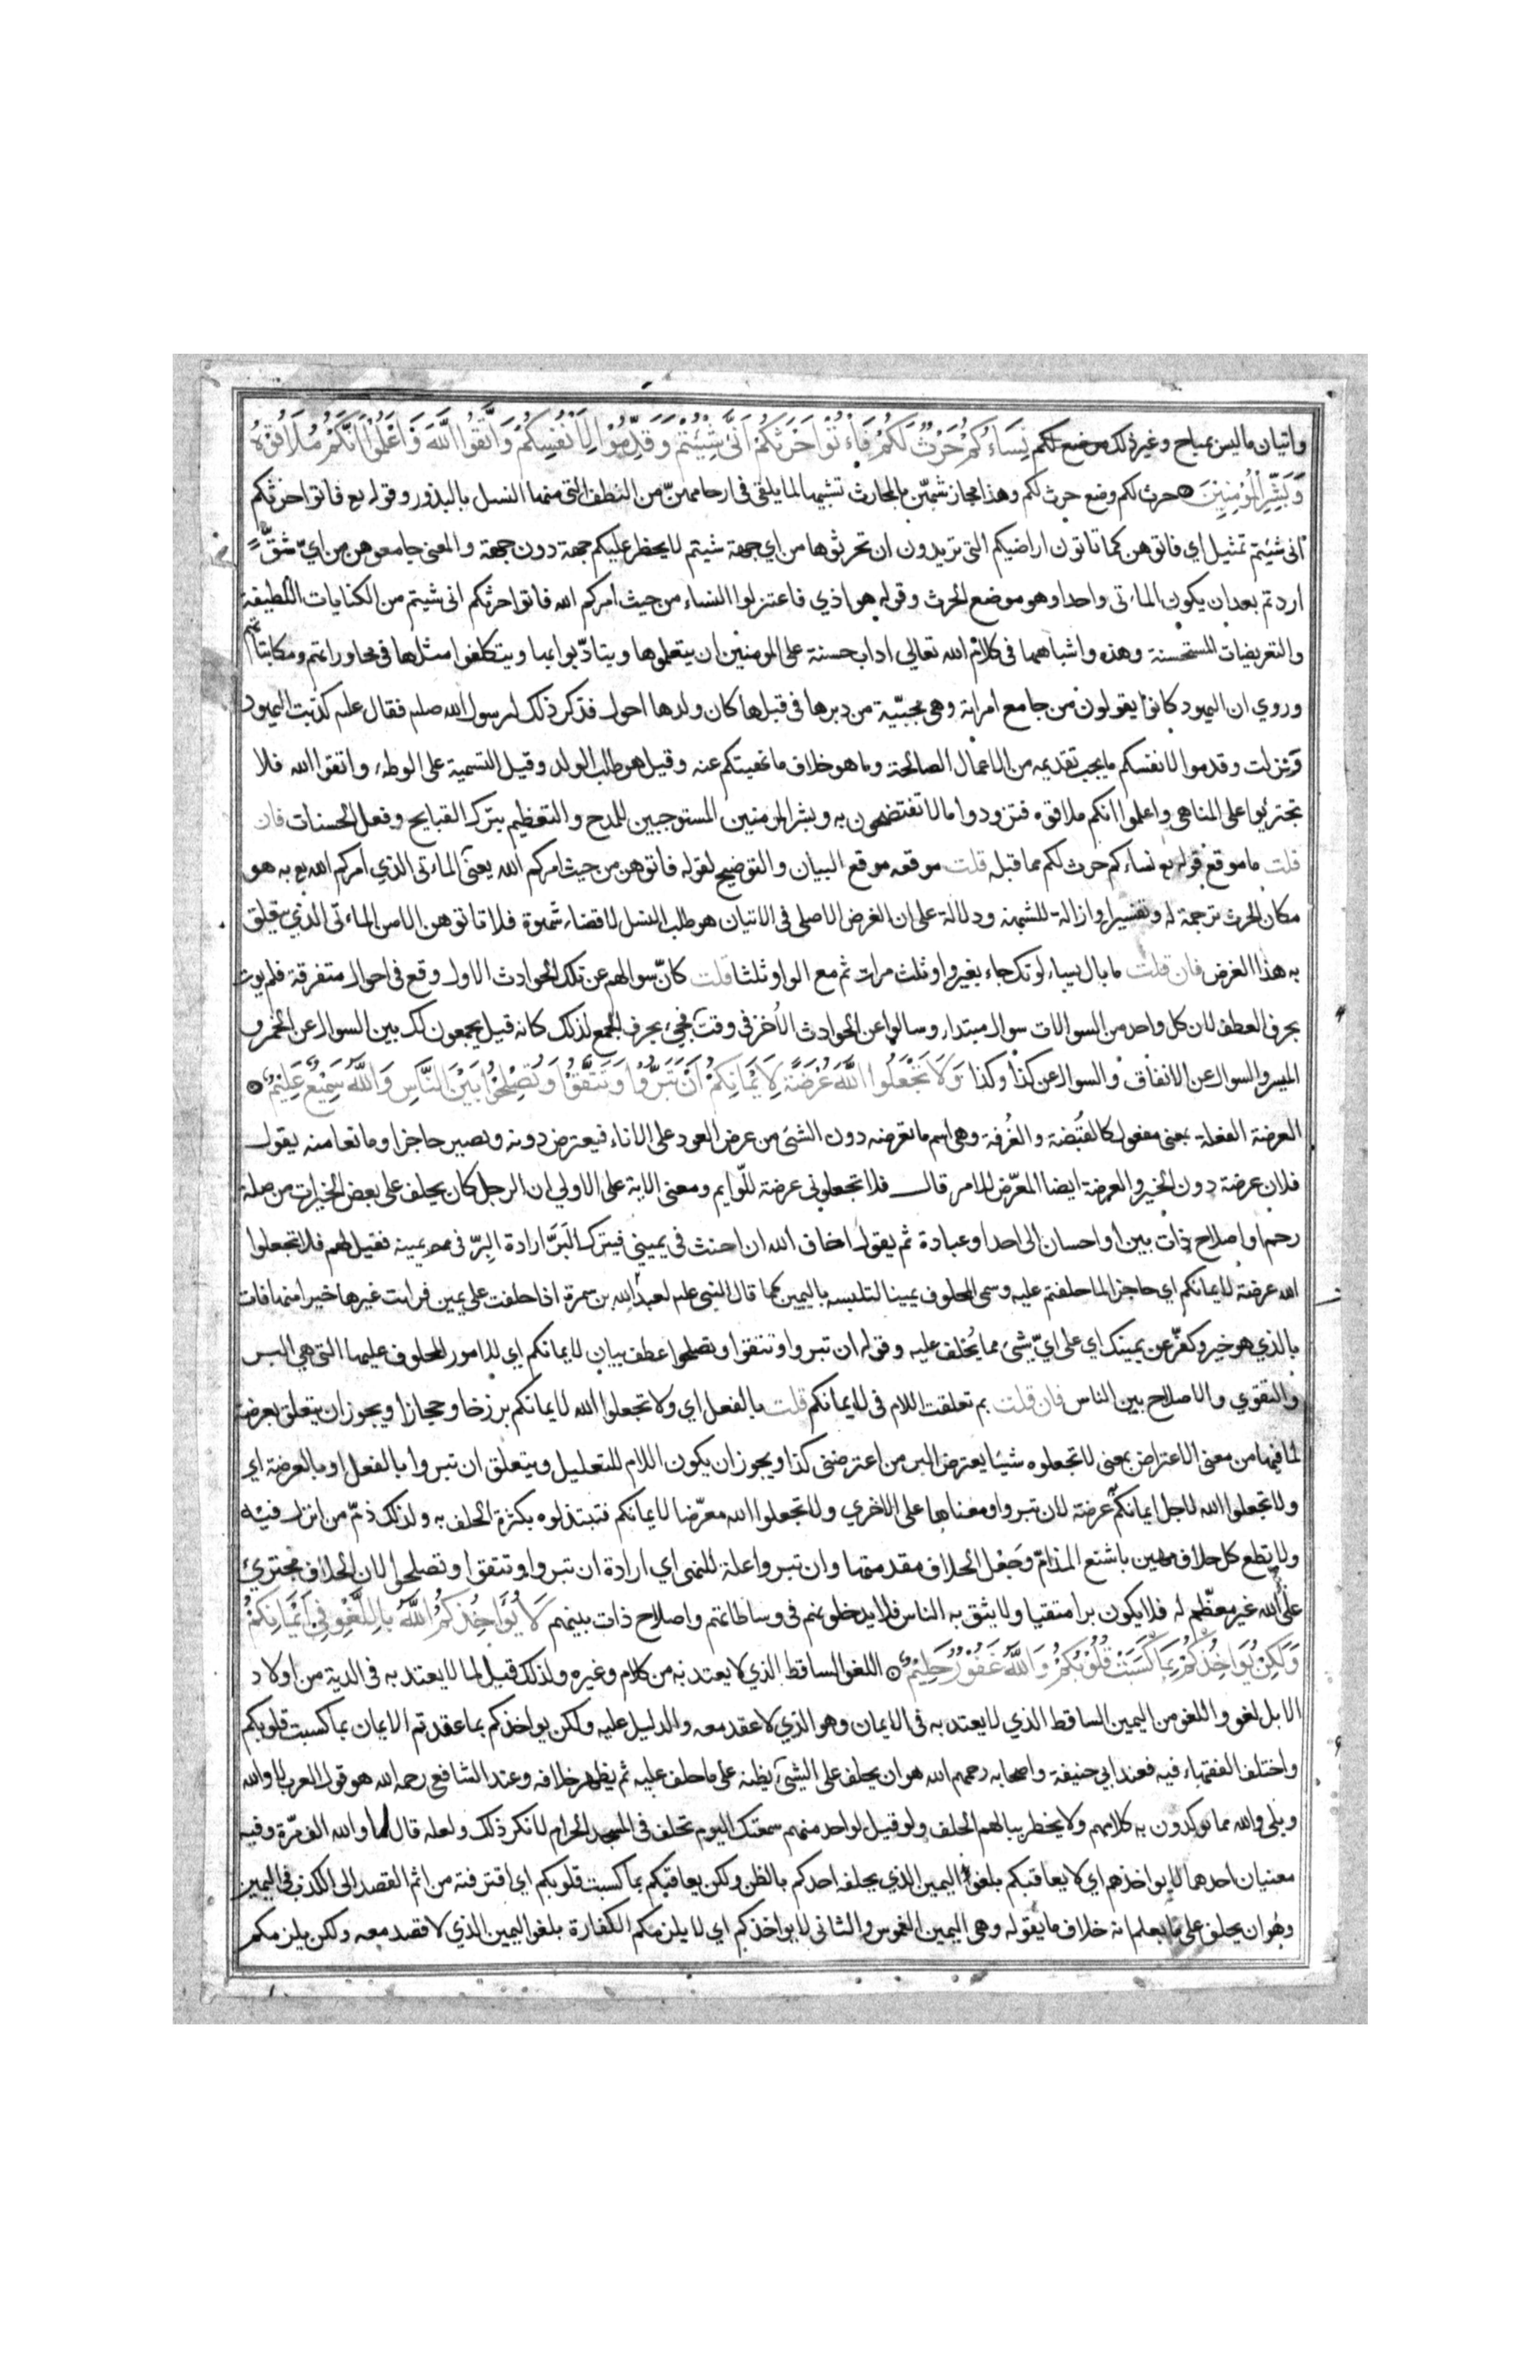 واتيان ماليس بمباح وغير ذلك موضع لكم نِسَاءُكُمْ حَرْثٌ لَكُمْ فَأْتُوْا حَرْثَكُمْ اَنَّى شِئْتُمْ وَقَدِّمُوْا لِاَنْفُسِكُمْ وَاتَّقُوا اللَّهَ وَاعْلَمُوْا اَنَّكُمْ مُلَاقُوْهُ
وَبَشِّرِ الْمُؤْمِنِيْنَ حرث لكم وضع حرث لكم وهذا مجاز شبهن بالمحارث تشبيها لما يلقى فى ارحامهنّ من النطف التى منها النسل بالبذور وقوله تع فاتوا حرثكم
انى شئتم تمثيل اي فاتوهن كما تاتون اراضيكم التى تريدون ان تحرثوها من اي جهة شيتم لا يحظر عليكم جهة دون جهة والمعنى جامعوهن من ايّ شقّ
اردتم بعد ان يكون الماءتى واحدا وهو موضع الحرث وقوله هو اذي فاعتزلوا النساء من حيث امركم الله فاتوا حرثكم انى شيتم من الكنايات اللطيفة
والتعريضات المستحسنة وهذه واشباهها فى كلام الله تعالى اداب حسنة على المومنين ان يتعلموها ويتادّبوا بها ويتكلفوا مثلها فى محاوراتهم ومكاتباتهم
وروي ان اليهود كانوا يقولون من جامع امراته وهى مجبّية من دبرها فى قبلها كان ولدها احول فذكر ذلك لرسول الله صلعم فقال علم كذبت اليهود
ونزلت وقدموا لانفسكم مايجب تقديمه من الاعمال الصالحة وما هو خلاف ما نهيتكم عنه وقيل هو طلب الولد وقيل التسمية على الوطء واتقوا الله فلا
تجتريوا على المناهى واعلموا انكم ملاقوه فتزودوا مالا تفتضحون به وبشر المومنين المستوجبين للمدح والتعظيم بترك القبايح وفعل الحسنات فان
قلت ما موقع قوله تع نساءكم حرث لكم مما قبله قلت موقعه موقع البيان والتوضيح لقوله فاتوهن من حيث امركم الله يعنى الماءتى الذي امركم الله تع به هو
مكان الحرث ترجمة له وتفسيرا وازالة للشبهة ودلالة على ان الغرض الاصلى فى الاتيان هو طلب النسل لا قضاء شهوة فلا تاتوهن الا من الماءتى الذي يتعلق
به هذا الغرض فان قلت ما بال يسالونك جاء بغير واو ثلث مرات ثم مع الواو ثلثا قلت كانّ سوالهم عن تلك الحوادث الاول وقع فى احوال متفرقة فلم يوت
بحرف العطف لان كل واحد من السوالات سوال مبتداء وسالوا عن الحوادث الاُخر فى وقت فجيء بحرف الجمع لذلك كانه قيل يجمعون لك بين السوال عن الخمر و
الميسر والسوال عن الانفاق والسوال عن كذا وكذا وَلَا تَجْعَلُوا اللَّهَ عُرْضَةً لِاَيْمَانِكُمْ اَنْ تَبَرُّوْا وَتَتَّقُوْا وَتُصْلِحُوْا بَيْنَ النَّاسِ وَاللَّهُ سَمِيْعٌ عَلِيْمٌ
العرضة الفعلة بمعنى مفعول كالقُبضة والغُرفة وهى اسم ما تعرضه دون الشئ من عرض العود على الاناء فيعترض دونه ويصير حاجزا ومانعا منه يقول
فلان عرضة دون الخير والعرضة ايضا المعرّض للامر قال فلا تجعلونى عرضة للّوايم ومعنى الاية على الاولى ان الرجل كان يحلف على بعض الخيرات من صلة
رحم او اصلاح ذات بين او احسان الى احد او عبادة ثم يقول اخاف الله ان احنث فى يمينى فيترك البَرَّ ارادة البِرّ فى يمينه فقيل لهم فلا تجعلوا
الله عرضة لايمانكم اي حاجزا لما حلفتم عليه وسمى المحلوف يمينا لتلبسه باليمين كما قال النبى علم لعبد الله بن سمرة اذا حلفت على يمين فرايت غيرها خيرا منها فات
بالذي هو خير وكفّر عن يمينك اي على ايّ شئ مما يُحلف عليه وقوله ان تبروا وتتقوا وتصلحوا عطف بيان لايمانكم اي للامور المحلوف عليها التى هى البر
والتقوي والاصلاح بين الناس فان قلت بم تعلقت اللام فى لايمانكم قلت بالفعل اي ولا تجعلوا الله لايمانكم برزخا وحجازا ويجوز ان يتعلق بعرضة
لما فيها من معنى الاعتراض بمعنى لا تجعلوه شيئا يعترض البر من اعترضنى كذا ويجوز ان يكون اللام للتعليل ويتعلق ان تبروا بالفعل او بالعرضة اي
ولا تجعلوا الله لاجل ايمانكم عرضة لان تبروا ومعناها على الاخري ولا تجعلوا الله معرّضا لايمانكم فتبتذلوه بكثرة الحلف به ولذلك ذمّ من انزل فيه
ولا تطع كل حلاف مهين باشنع المذامّ وجعل الحلاف مقدمتها وان تبروا علة للنهى اي ارادة ان تبروا وتتقوا وتصلحوا لان الحلاف مجترئ
على الله غير معظّم له فلا يكون برا متقيا ولا يثق به الناس فلا يدخلونهم فى وساطاتهم واصلاح ذات بينهم لَا يُؤَاخِذُكُمُ اللَّهُ بِاللَّغْوِ فِى اَيْمَانِكُمْ
وَلَكِنْ يُؤَاخِذُكُمْ بِمَا كَسَبَتْ قُلُوْبُكُمْ وَاللَّهُ غَفُوْرٌ حَلِيْمٌ اللغو الساقط الذي لا يعتد به من كلام وغيره ولذلك قيل لما لا يعتد به فى الدية من اولاد
الابل لغو واللغو من اليمين الساقط الذي لا يعتد به فى الايمان وهو الذي لا عقد معه والدليل عليه ولكن يواخذكم بما عقدتم الايمان بما كسبت قلوبكم
واختلف الفقهاء فيه فعند ابى حنيفة واصحابه رحمهم الله هو ان يحلف على الشئ يظنه على ما حلف عليه ثم يظهر خلافه وعند الشافعى رحمه الله هو قول العرب لا والله
وبلى والله مما يوكدون به كلامهم ولا يخطر ببالهم الحلف ولو قيل لواحد منهم سمعتك اليوم تحلف فى المسجد الحرام لانكر ذلك ولعله قال لا والله الف مرّة وفيه
معنيان احدهما لا يواخذهم اي لا يعاقبكم بلغو اليمين الذي يحلفه احدكم بالظن ولكن يعاقبكم بما كسبت قلوبكم اي اقترفته من اثم القصد الى الكذب فى اليمين
وهو ان يحلف على ما يعلم انه خلاف ما يقوله وهى اليمين الغموس والثانى لا يواخذكم اي لا يلزمكم الكفارة بلغو اليمين الذي لا قصد معه ولكن يلزمكم